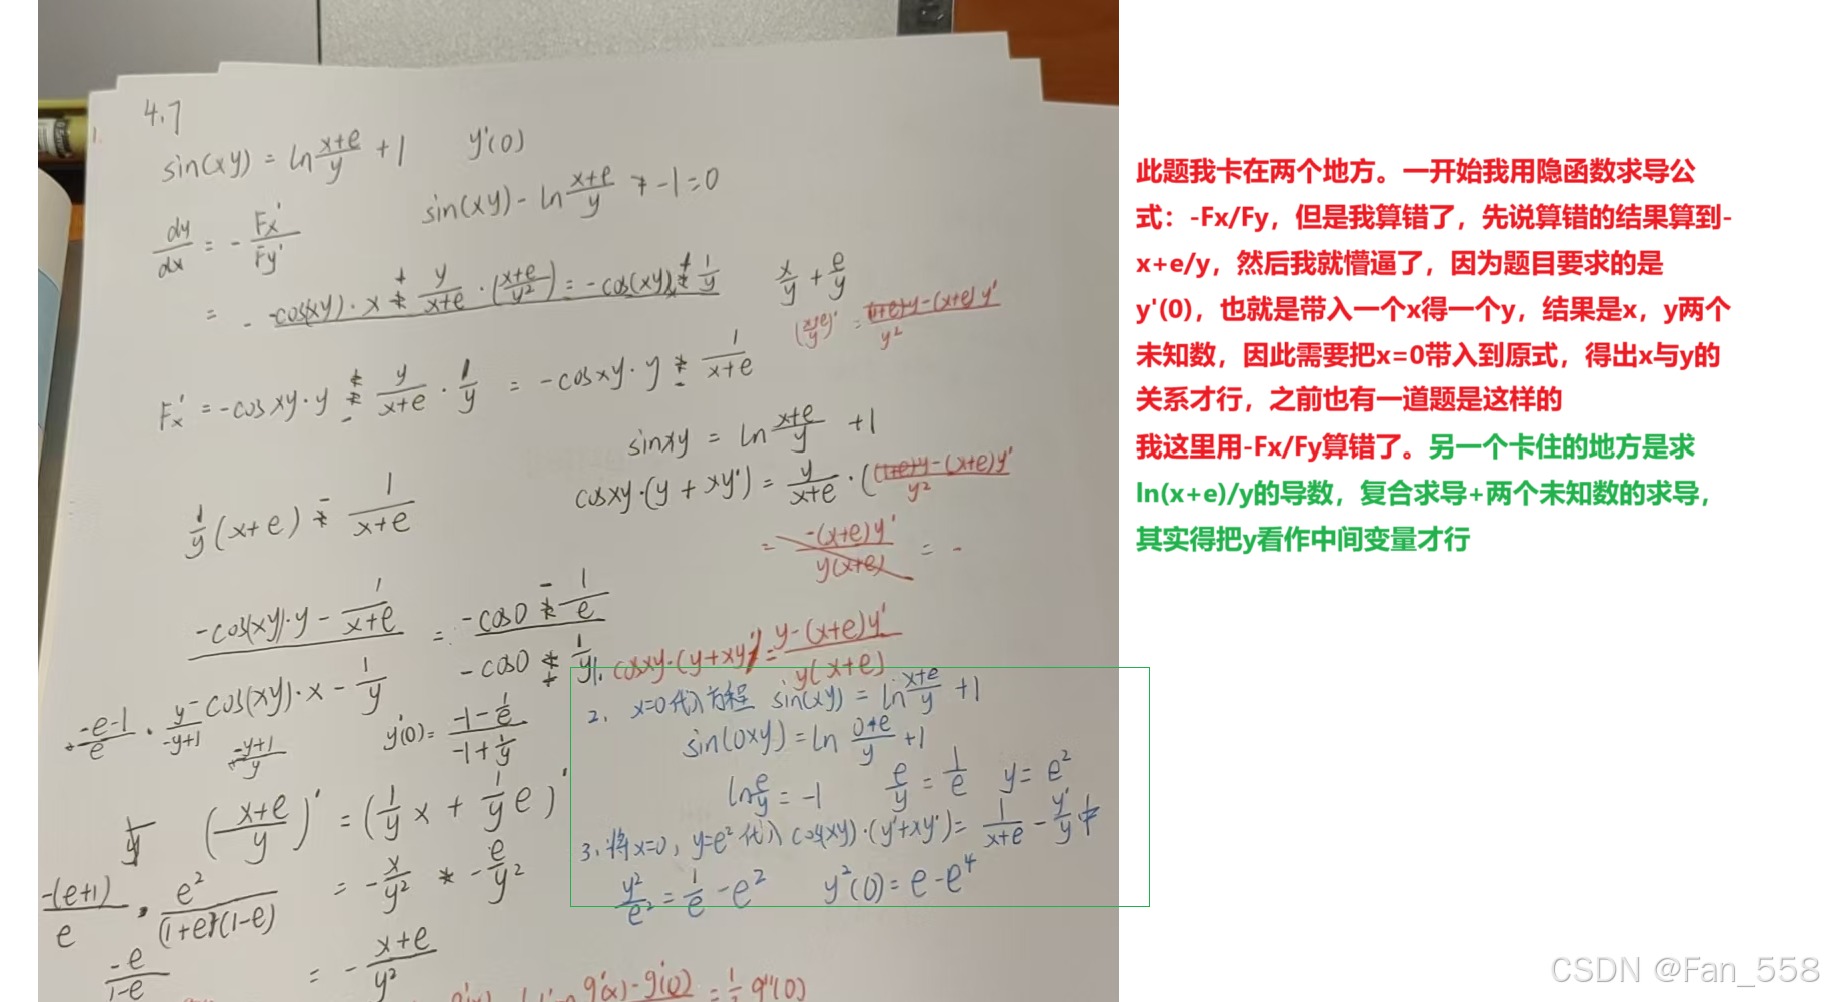 4.7
1.
sin(xy) = ln (x+e)/y + 1 y'(0)
sin(xy) - ln (x+e)/y - 1 = 0
dy/dx = - Fx'/Fy'
= - -cos(xy)·x + y/(x+e) · ((x+e)/y²) = -cos(xy) + 1/y
x/y + e/y
((x+e)/y)' = (1+e)y-(x+e)y'/y²
Fx' = -cosxy·y - y/(x+e) · 1/y = -cosxy·y - 1/(x+e)
sinxy = ln (x+e)/y + 1
cosxy·(y + xy') = y/(x+e) · ((1+e)y-(x+e)y'/y²
1/y (x+e) - 1/(x+e)
= -(x+e)y'/y(x+e) = -
-cos(xy)·y - 1/(x+e) = -cos0 - 1/e
-cos(xy)·x - 1/y -cos0 + 1/y
1. cosxy·(y+xy') = y-(x+e)y'/y(x+e)
2. x=0代入方程 sin(xy) = ln (x+e)/y + 1
sin(0xy) = ln (0+e)/y + 1
-e-1/e · y/-y+1 -y+1/y
y'(0) = (-1-1/e)/(-1+1/y)
ln e/y = -1 e/y = 1/e y = e²
((x+e)/y)' = (1/y x + 1/y e)'
3. 将x=0, y=e²代入 cos(xy)·(y'+xy') = 1/(x+e) - y'/y
= -x/y² - e/y²
y²/e² = 1/e - e² y²(0) = e - e⁴
-(e+1)/e · e²/(1+e)(1-e)
-e/1-e
= -(x+e)/y²
g'(x)-g'(0) = g''(0)
此题我卡在两个地方。一开始我用隐函数求导公
式：-Fx/Fy，但是我算错了，先说算错的结果算到-
x+e/y，然后我就懵逼了，因为题目要求的是
y'(0)，也就是带入一个x得一个y，结果是x，y两个
未知数，因此需要把x=0带入到原式，得出x与y的
关系才行，之前也有一道题是这样的
我这里用-Fx/Fy算错了。另一个卡住的地方是求
ln(x+e)/y的导数，复合求导+两个未知数的求导，
其实得把y看作中间变量才行
CSDN @Fan_558